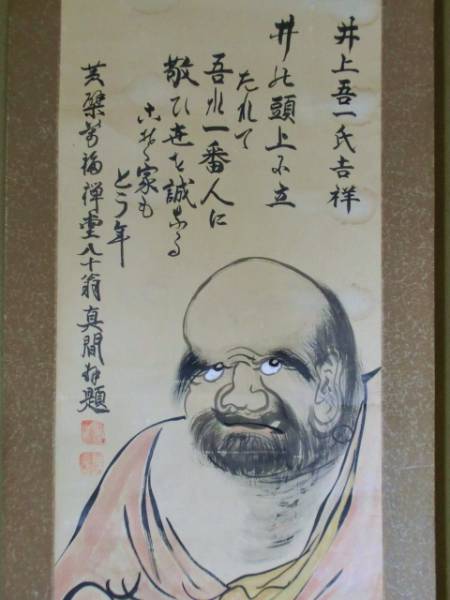 井上吾一氏吉祥
井の頭上に立
たれて
吾れ一番人に
敬ひ世を誠なる
こそ家も
とう年
黄檗萬福禅堂八十翁真間拝題